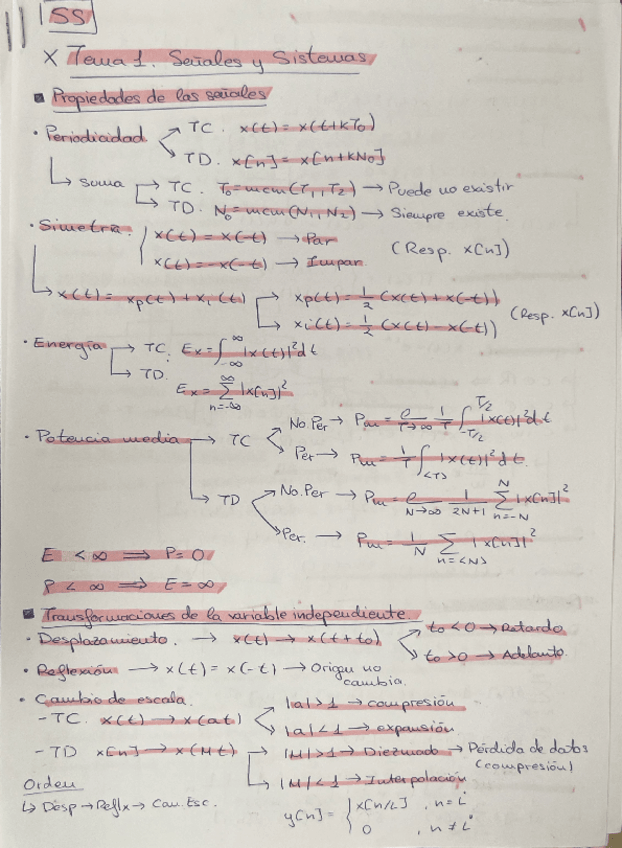 SS
X Tema 1. Señales y Sistemas
▪ Propiedades de las señales
· Periodicidad → TC. x(t) = x(t+kT₀)
→ TD. x[n] = x[n+kN₀]
↳ Suma → TC. T₀ = mcm(T₁, T₂) → Puede no existir
→ TD. N₀ = mcm(N₁, N₂) → Siempre existe.
· Simetría. { x(t) = x(-t) → Par
x(t) = -x(-t) → Impar. (Resp. x[n])
↳ x(t) = xp(t) + xi(t) → xp(t) = 1/2 (x(t) + x(-t))
↳ xi(t) = 1/2 (x(t) - x(-t)) (Resp. x[n])
· Energía → TC. Ex = ∫_{-∞}^{∞} |x(t)|² dt
→ TD. Ex = Σ_{n=-∞}^{∞} |x[n]|²
· Potencia media → TC → No.Per → Pm = ℓ_{T→∞} 1/T ∫_{-T/2}^{T/2} |x(t)|² dt
Per → Pm = 1/T ∫_{<T>} |x(t)|² dt.
→ TD → No.Per → Pm = ℓ_{N→∞} 1/(2N+1) Σ_{n=-N}^{N} |x[n]|²
Per. → Pm = 1/N Σ_{n=<N>} |x[n]|²
E < ∞ ⟹ P = 0
P < ∞ ⟹ E = ∞
▪ Transformaciones de la variable independiente.
· Desplazamiento. → x(t) → x(t+t₀) → t₀ < 0 → Retardo
→ t₀ > 0 → Adelanto.
· Reflexión → x(t) = x(-t) → Origen no
cambia.
· Cambio de escala.
- TC. x(t) → x(at) → |a| > 1 → compresión
→ |a| < 1 → expansión
- TD x[n] → x(Mt) → |M| > 1 → Diezmado → Pérdida de datos
(compresión)
↳ |M| < 1 → Interpolación
Orden
↳ Desp → Reflx → Cam. Esc.
y[n] = { x[n/L] , n = L̇
0 , n ≠ L̇